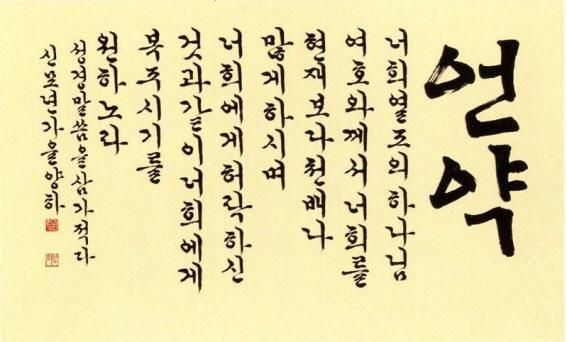 언약
너희열조의하나님
여호와께서너희를
현재보다천배나
많게하시며
너희에게허락하신
것과같이너희에게
복주시기를
원하노라
성경말씀을삼가적다
신묘년가을양하